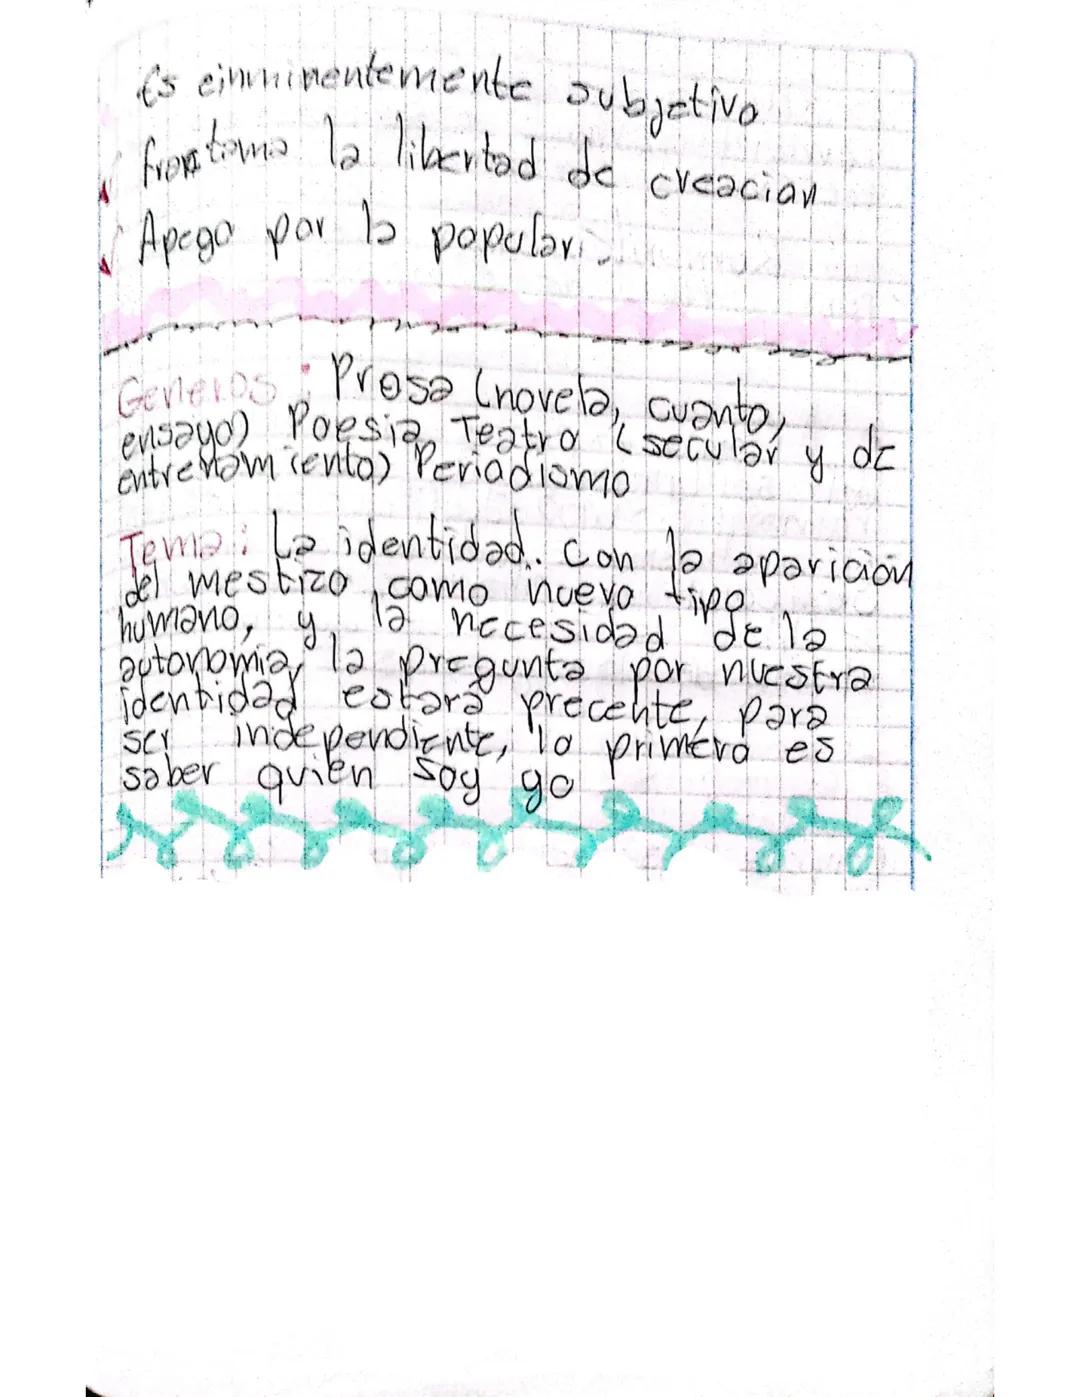 Es eimninentemente subjetivo
la libertad de creacian
Apego por lo popular.
Generos : Prosa (novela, cuento,
ensayo) Poesia, Teatro (secular y de
entrenamiento) Periodismo
Tema : La identidad. Con la aparición
del mestizo, como nuevo tipo
humano, y la necesidad de la
autonomia, la pregunta por nuestra
identidad estará precente, para
ser independiente, lo primero es
saber quien soy yo